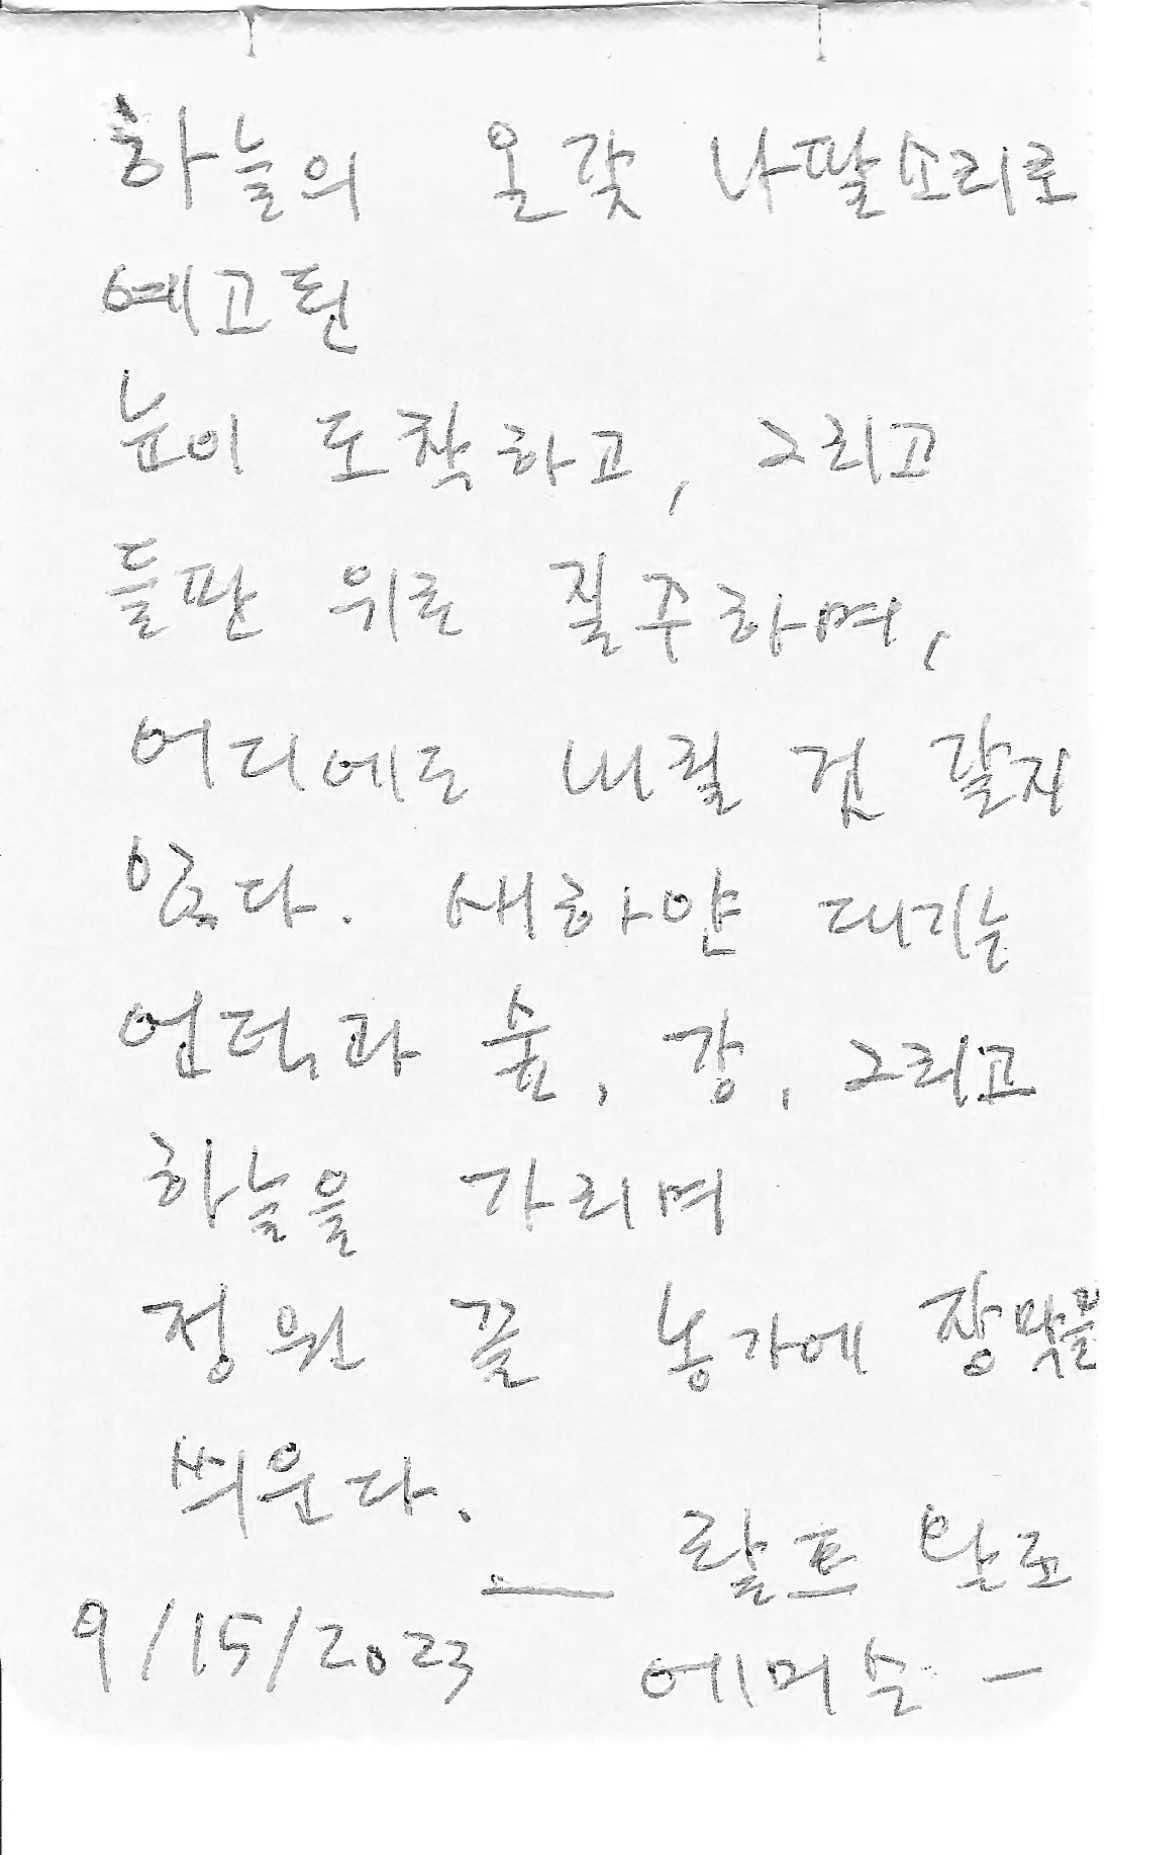 하늘의 온갖 나팔소리로
예고된
눈이 도착하고, 그리고
들판 위로 질주하며,
어디에도 내릴 것 같지
않다. 새하얀 대기는
언덕과 숲, 강, 그리고
하늘을 가리며
정원 끝 농가에 장막을
씌운다.
— 랄프 왈도
9/15/2023 에머슨 -